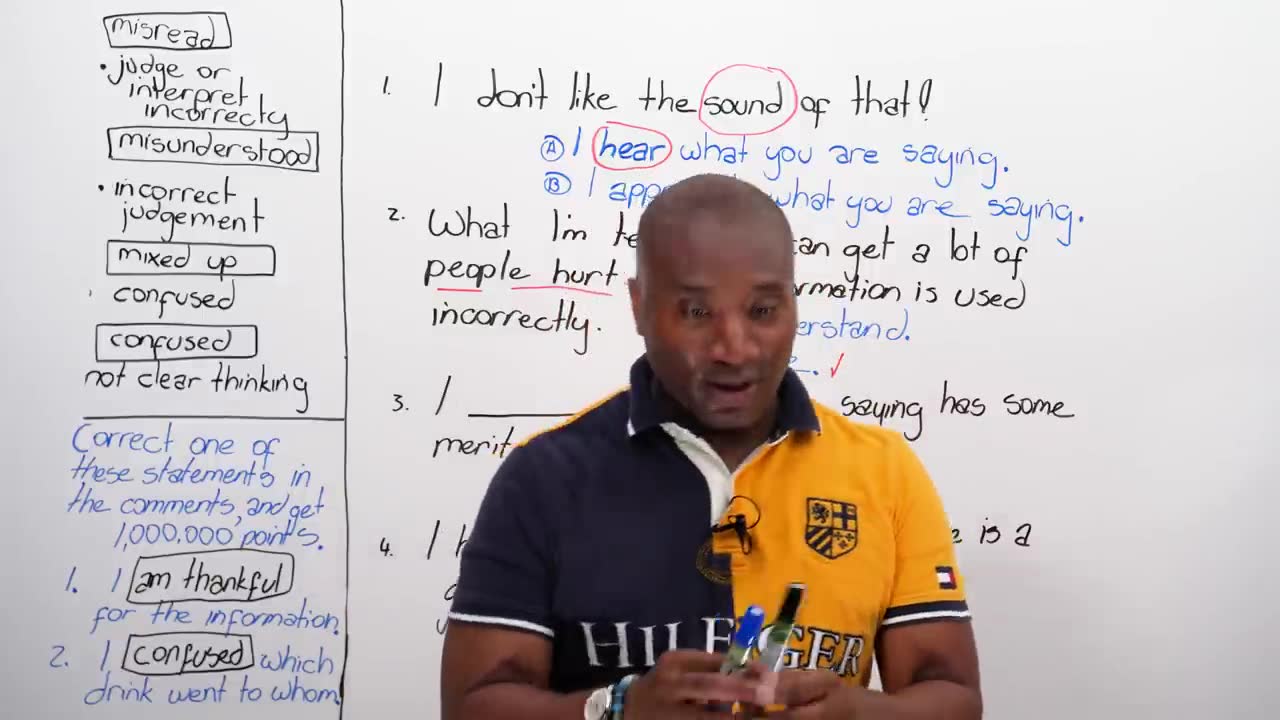 misread
• judge or
interpret
incorrecty
misunderstood
• incorrect
judgement
mixed up
confused
confused
not clear thinking
Correct one of
these statements in
the comments, and get
1,000,000 points.
1. I am thankful
for the information.
2. I confused which
drink went to whom.
1. I don't like the sound of that!
Ⓐ I hear what you are saying.
Ⓑ I what you are saying.
2. What I'm can get a lot of
people hurt is used
incorrectly.
3. I ________ saying has some
merit
4. I is a
HILFIGER